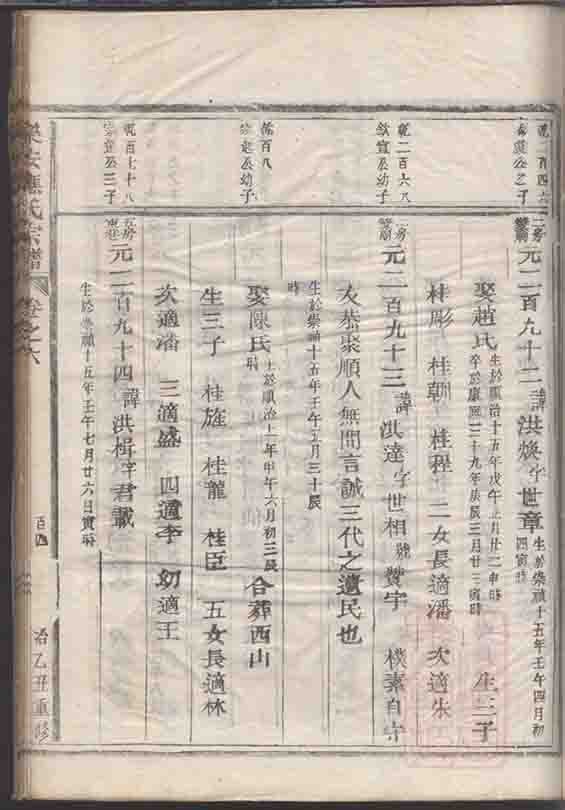 乾二百四十六
二房
元二百九十二諱洪煥字世章
生於崇禎十五年壬午四月初
四寅時
娶趙氏
生於順治十五年戊午正月廿二申時
卒於康熙三十九年庚辰三月廿三寅時
生三子
桂彫 桂朝 桂程 二女長適潘 次適朱
乾二百六八
欽宣公幼子
房
元二百九十三諱洪達字世相號贊宇 樸素自守
友恭聚順人無間言誠三代之遺民也
生於崇禎十五年壬午五月三十辰
時
乾百八
公幼子
娶陳氏
生於順治十一年甲午六月初三辰
時
合葬西山
生三子 桂旌 桂龍 桂臣 五女長適林
次適潘 三適盛 四適李 幼適王
乾百七十八
公三子
房
元二百九十四諱洪楫字君載
生於崇禎十五年壬午七月廿六日寅時
樂安 氏宗譜 卷之六
百四
治乙丑重修